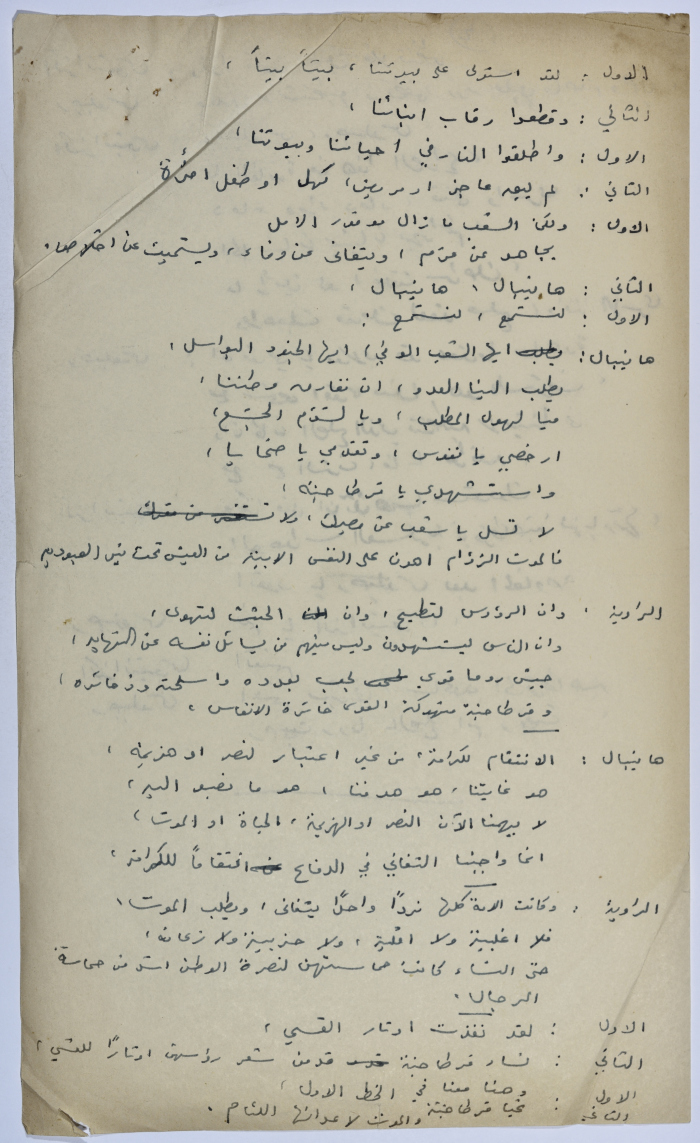 الاول : لقد استولى على بيوتنا ، بيتاً بيتاً ،
الثاني : وقطعوا رقاب ابنائنا ،
الاول : واطلقوا النار في احيائنا وبيوتنا ،
الثاني : لم يبق عاجز او مريض ، كهل او طفل امرأة
الاول : ولكن الشعب ما زال موفور الامل
يجاهد عن عزم ، ويتفانى عن وفاء ، ويستميت عن اخلاص .
الثاني : هانيبال ، هانيبال ،
الاول : لنستمع ، لنستمع :
هانيبال : ايها الشعب الوفي ، ايها الجنود البواسل ،
يطلب الينا العدو ، ان نفارق وطننا ،
فيا لهول المطلب ، ويا للؤم الجشع ،
ارخصي يا نفوس ، وتقدمي يا ضحايا ،
واستشهدي يا قرطاجنة ،
لا تسل يا شعب عن مصيرك ، ولا
فالموت الزؤام اهون على النفس الابية من العيش تحت نير العبودية
الراوية : وان الرؤوس لتطيح ، وان الجثث لتهوى ،
وان الناس ليستشهدون وليس منهم من يسائل نفسه عن النهاية ،
جيش روما قوي لجب بعدده واسلحته وذخائره ،
وقرطاجنة منهوكة القوى خائرة الانفاس .
هانيبال : الانتقام للكرامة ، من غير اعتبار لنصر او هزيمة ،
هو غايتنا ، هو هدفنا ، هو ما نصبو اليه ،
لا يهمنا الآن النصر او الهزيمة ، الحياة او الموت ،
انما واجبنا التفاني في الدفاع انتقاماً للكرامة ،
الراوية : وكانت الامة كلها فرداً واحداً يتفانى ، ويطلب الموت ،
فلا اغلبية ولا اقلية ، ولا حزبية ولا زعامة ،
حتى النساء كانت حماستهن لنصرة الوطن اشد من حماسة
الرجال .
الاول : لقد نفذت اوتار القسي ،
الثاني : نساء قرطاجنة قدمن شعر رؤوسهن اوتاراً للقسي ،
وهنا معنا في الخط الاول ،
الاول والثاني : تحيا قرطاجنة والموت لاعدائها اللئام .